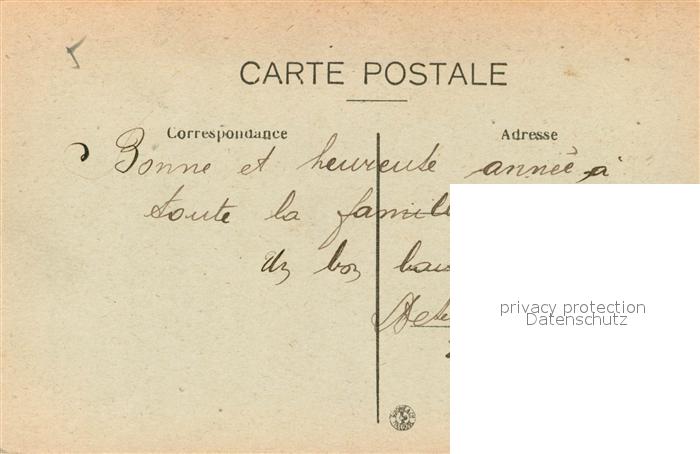 CARTE POSTALE
Correspondance Adresse
Bonne et heureuse année à
toute la famille
Un bon
privacy protection
Datenschutz